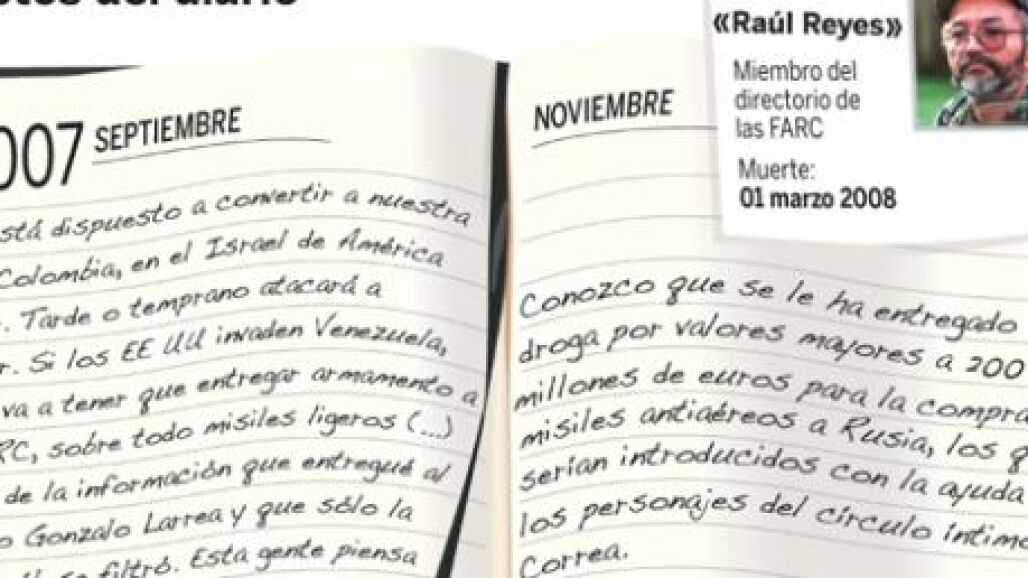 del diario
2007 SEPTIEMBRE
está dispuesto a convertir a nuestra
Colombia, en el Israel de América
Tarde o temprano atacará a
Si los EE UU invaden Venezuela,
va a tener que entregar armamento a
sobre todo misiles ligeros (...)
de la información que entregué al
Gonzalo Larrea y que sólo la
se filtró. Esta gente piensa
NOVIEMBRE
Conozco que se le ha entregado
droga por valores mayores a 200
millones de euros para la compra
misiles antiaéreos a Rusia, los
serían introducidos con la ayuda
los personajes del círculo íntimo
Correa.
«Raúl Reyes»
Miembro del
directorio de
las FARC
Muerte:
01 marzo 2008